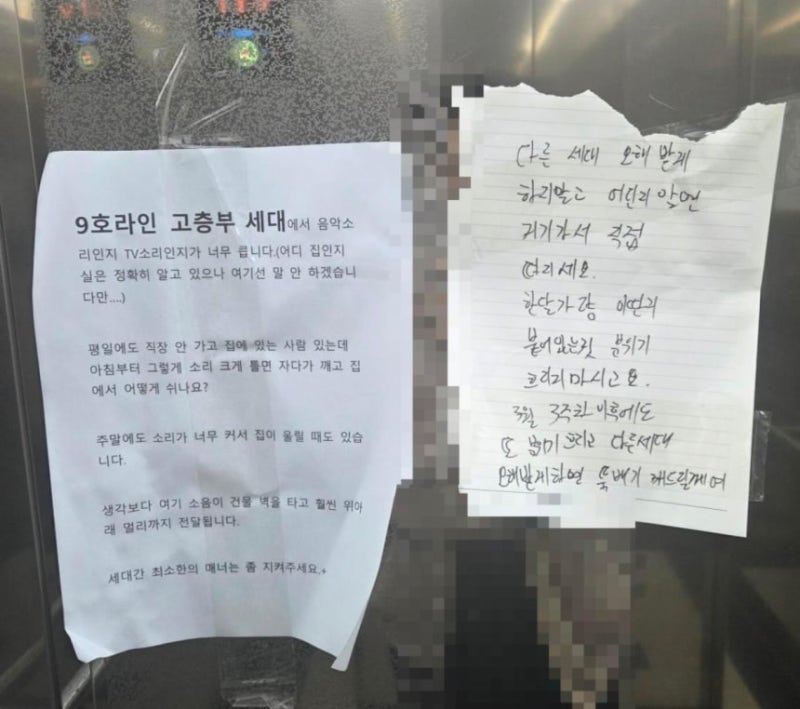 9호라인 고층부 세대에서 음악소
리인지 TV소리인지가 너무 릅니다.(어디 집인지
실은 정확히 알고 있으나 여기선 말 안 하겠습니
다만....)
평일에도 직장 안 가고 집에 있는 사람 있는데
아침부터 그렇게 소리 크게 틀면 자다가 깨고 집
에서 어떻게 쉬나요?
주말에도 소리가 너무 커서 집이 울릴 때도 있습
니다.
생각보다 여기 소음이 건물 벽을 타고 훨씬 위아
래 멀리까지 전달됩니다.
세대간 최소한의 매너는 좀 지켜주세요.
다른 세대 오해 받게
하지말고 어딘지 알면
거기가서 직접
따지세요.
한달가량 이딴거
붙어있는것 분위기
흐리지마시고요.
3월 3주차 이후에도
또 분위기 흐리고 다른세대
오해받게하면 뚝배기 깨드릴께여